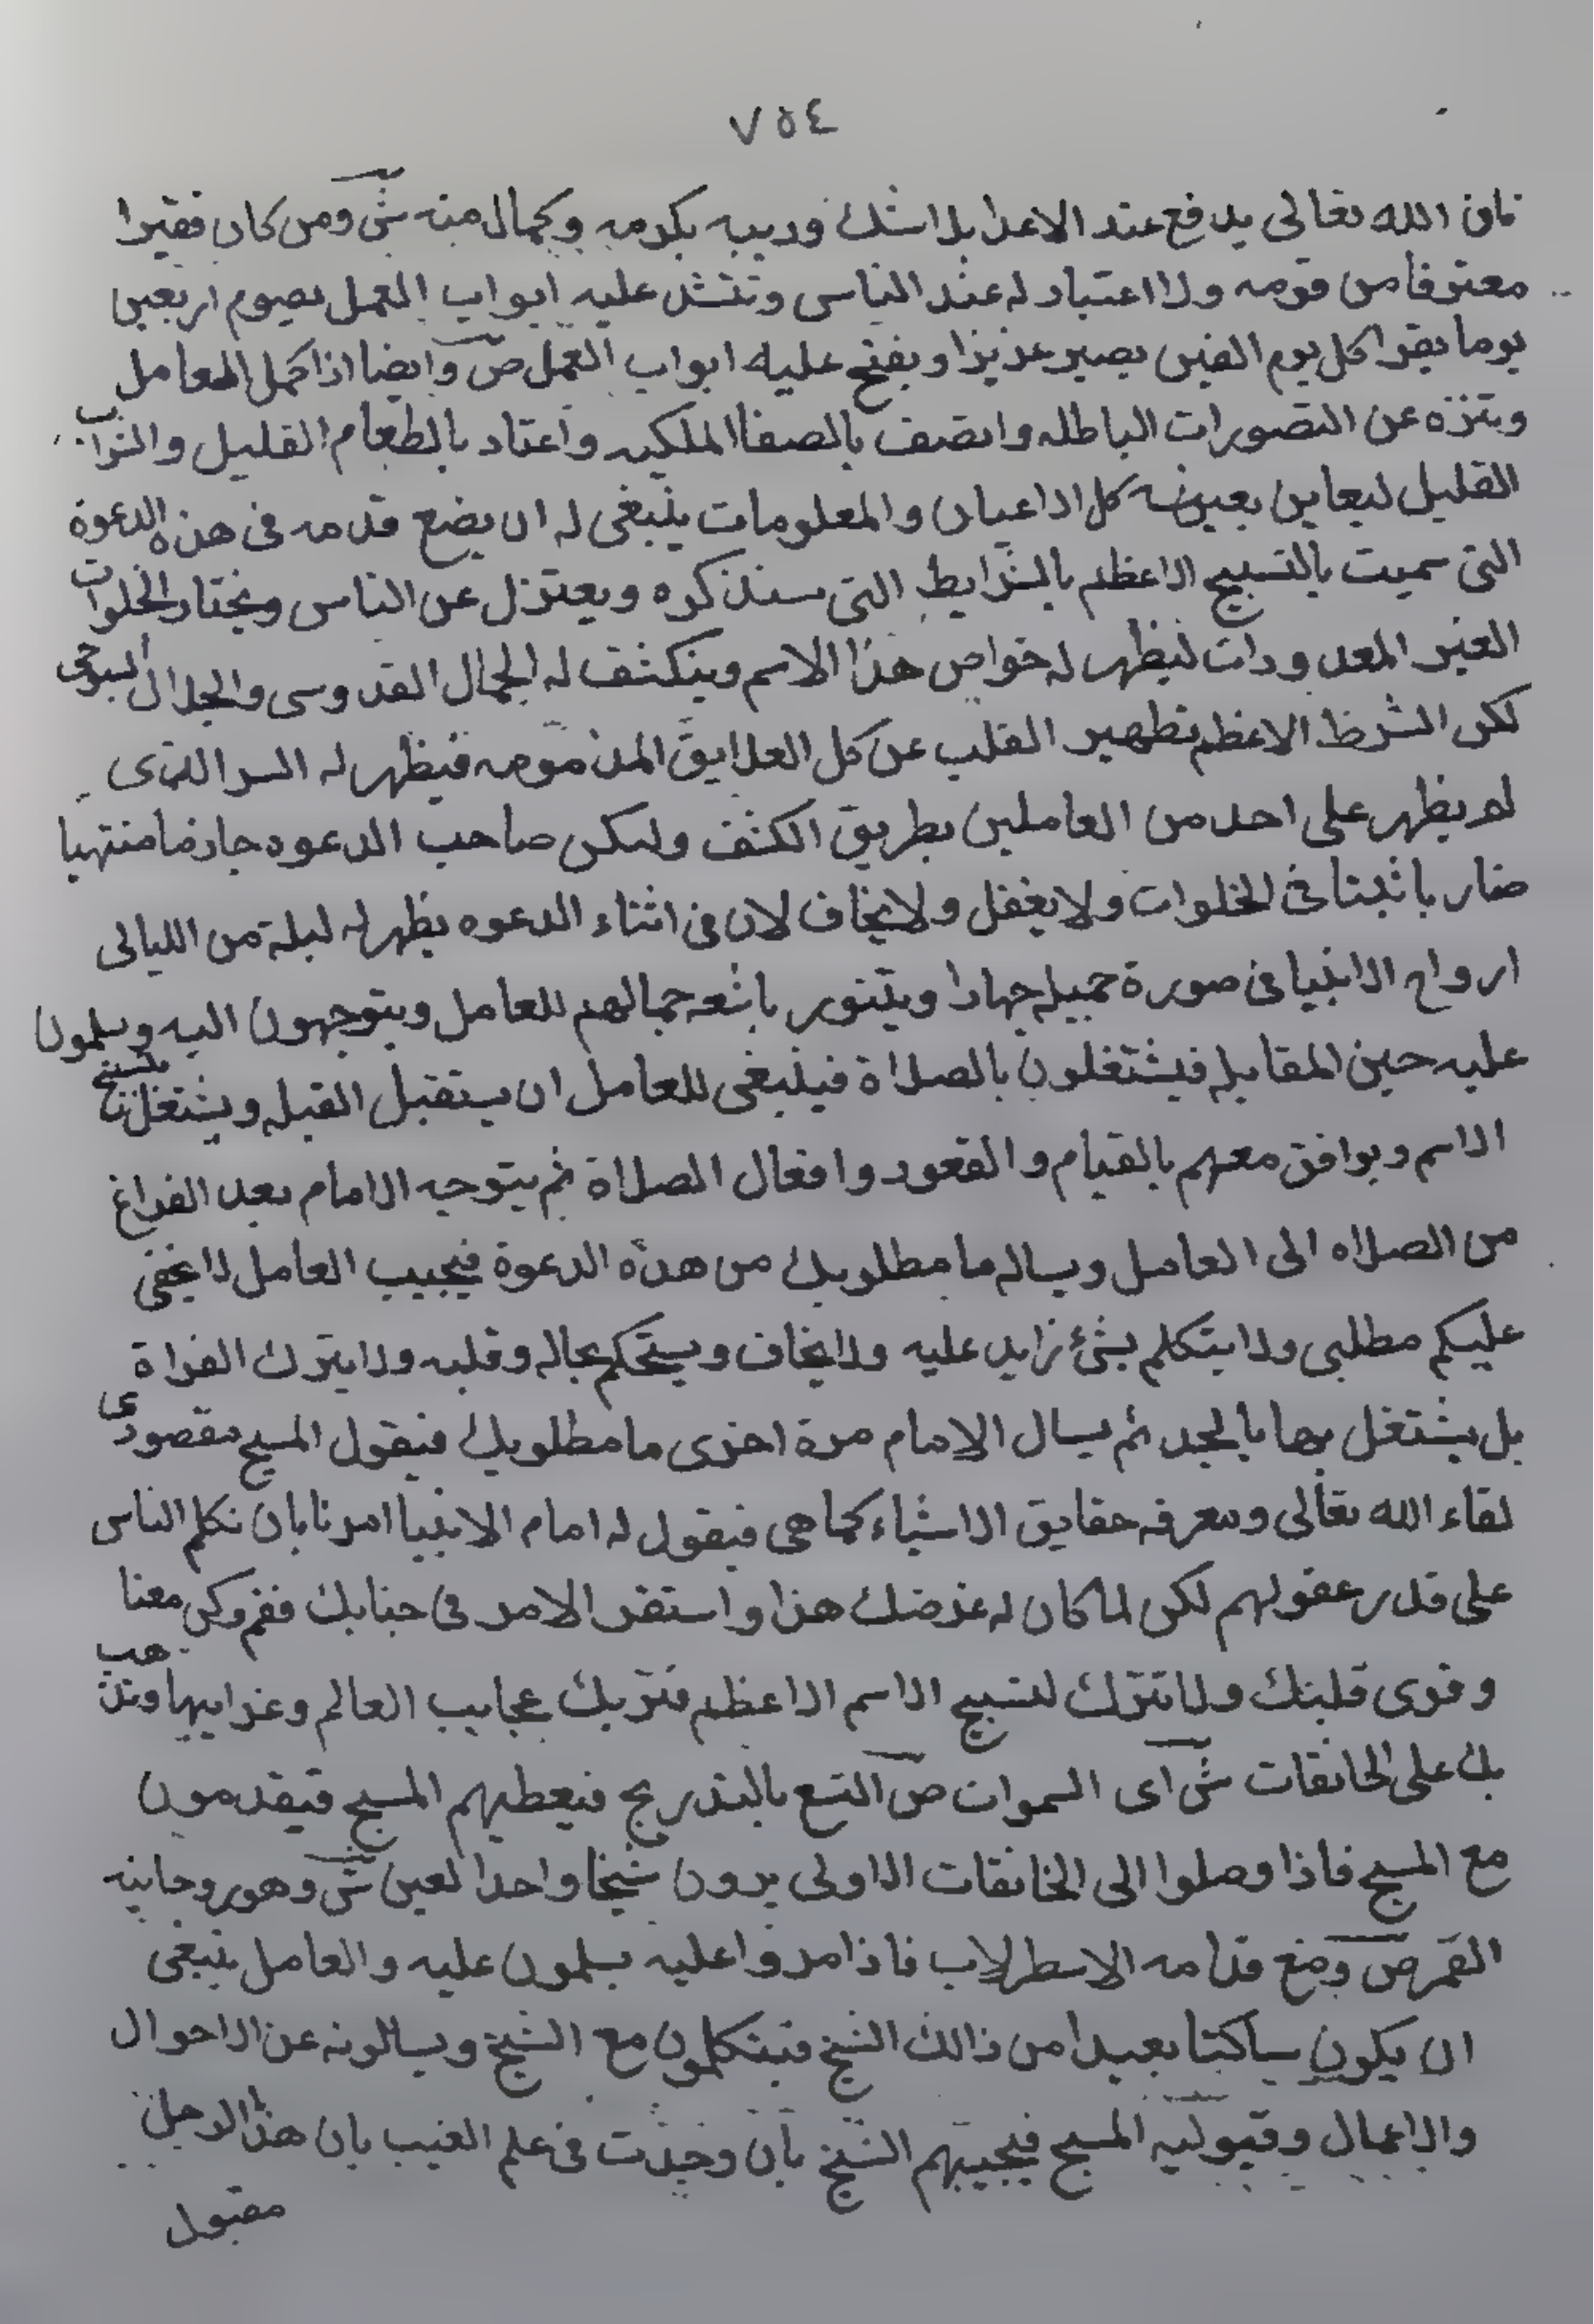 ٧٥٤
فان الله تعالى يدفع عند الاعدا بلا شك وريبه بكرمه وكمال منه شى ومن كان فقيرا
معتوفا من قومه ولا اعتبار له عند الناس وتنشد عليه ابواب العمل يصوم اربعين
يوما يقرا كل يوم الفين يصير عزيزا ويفتح عليه ابواب العمل ص وايضا اذا كمل العامل
وبتزه عن التصورات الباطله واتصف بالصفا الملكيه واعتاد بالطعام القليل والشراب
القليل ليعاين بعينه كل الاعيان والمعلومات ينبغى له ان يضع قدمه فى هذه الدعوة
التى سميت بالتسبيح الاعظم بالشرايط التى سنذكره ويعتزل عن الناس ويختار الخلوات
الغير المعدودات ليظهر له خواص هذا الاسم وينكشف له الجمال القدوسى والجلال السبوحى
لكن الشرط الاعظم تطهير القلب عن كل العلايق المذمومه فيظهر له السر الذى
لم يظهر على احد من العاملين بطريق الكشف وليكن صاحب الدعوه جازما منتهيا
ضاربا ثبتا فى الخلوات ولا يغفل ولا يخاف لان فى اثناء الدعوه يظهر له ليلة من الليالى
ارواح الانبيا فى صورة جميله جهارا ويتنور باشعه جمالهم للعامل ويتوجهون اليه ويسلمون
عليه حين المقابله فيشتغلون بالصلاة فينبغى للعامل ان يستقبل القبله ويشتغل بتسبيح
الاسم ويوافق معهم بالقيام والقعود وافعال الصلاة ثم يتوجه الامام بعد الفراغ
من الصلاه الى العامل ويساله ما مطلوبك من هذه الدعوة فيجيب العامل لا يخفى
عليكم مطلبى ولا يتكلم بشئ زايد عليه ولا يخاف ويستحكم بحاله وقلبه ولا يترك القراة
بل يشتغل بها بالجد ثم يسال الامام مرة اخرى ما مطلوبك فيقول المسبح مقصودى
لقاء الله تعالى ومعرفه حقايق الاشياء كما هى فيقول له امام الانبيا امرنا بان نكلم الناس
على قدر عقولهم لكن لما كان له غرضك هذا واستقر الامر فى جنابك فقم وكن معنا
وقوى قلبك ولا تترك لتسبيح الاسم الاعظم فنريك عجايب العالم وغرايبها ونذهب
بك على الخانقات شى اى السموات ص التسع بالتدريج فيعطيهم المسبح فيقدمون
مع المسبح فاذا وصلوا الى الخانقات الاولى يرون شيخا واحدا لعين شى وهو روحانيه
القمر ص وضع قدامه الاسطرلاب فاذا مروا عليه يسلمون عليه والعامل ينبغى
ان يكون ساكتا بعيدا من ذالك الشيخ فيتكلمون مع الشيخ ويسالونه عن الاحوال
والاعمال وقبوليه المسبح فيجيبهم الشيخ بان وجدت فى علم الغيب بان هذا الرجل
مقبول